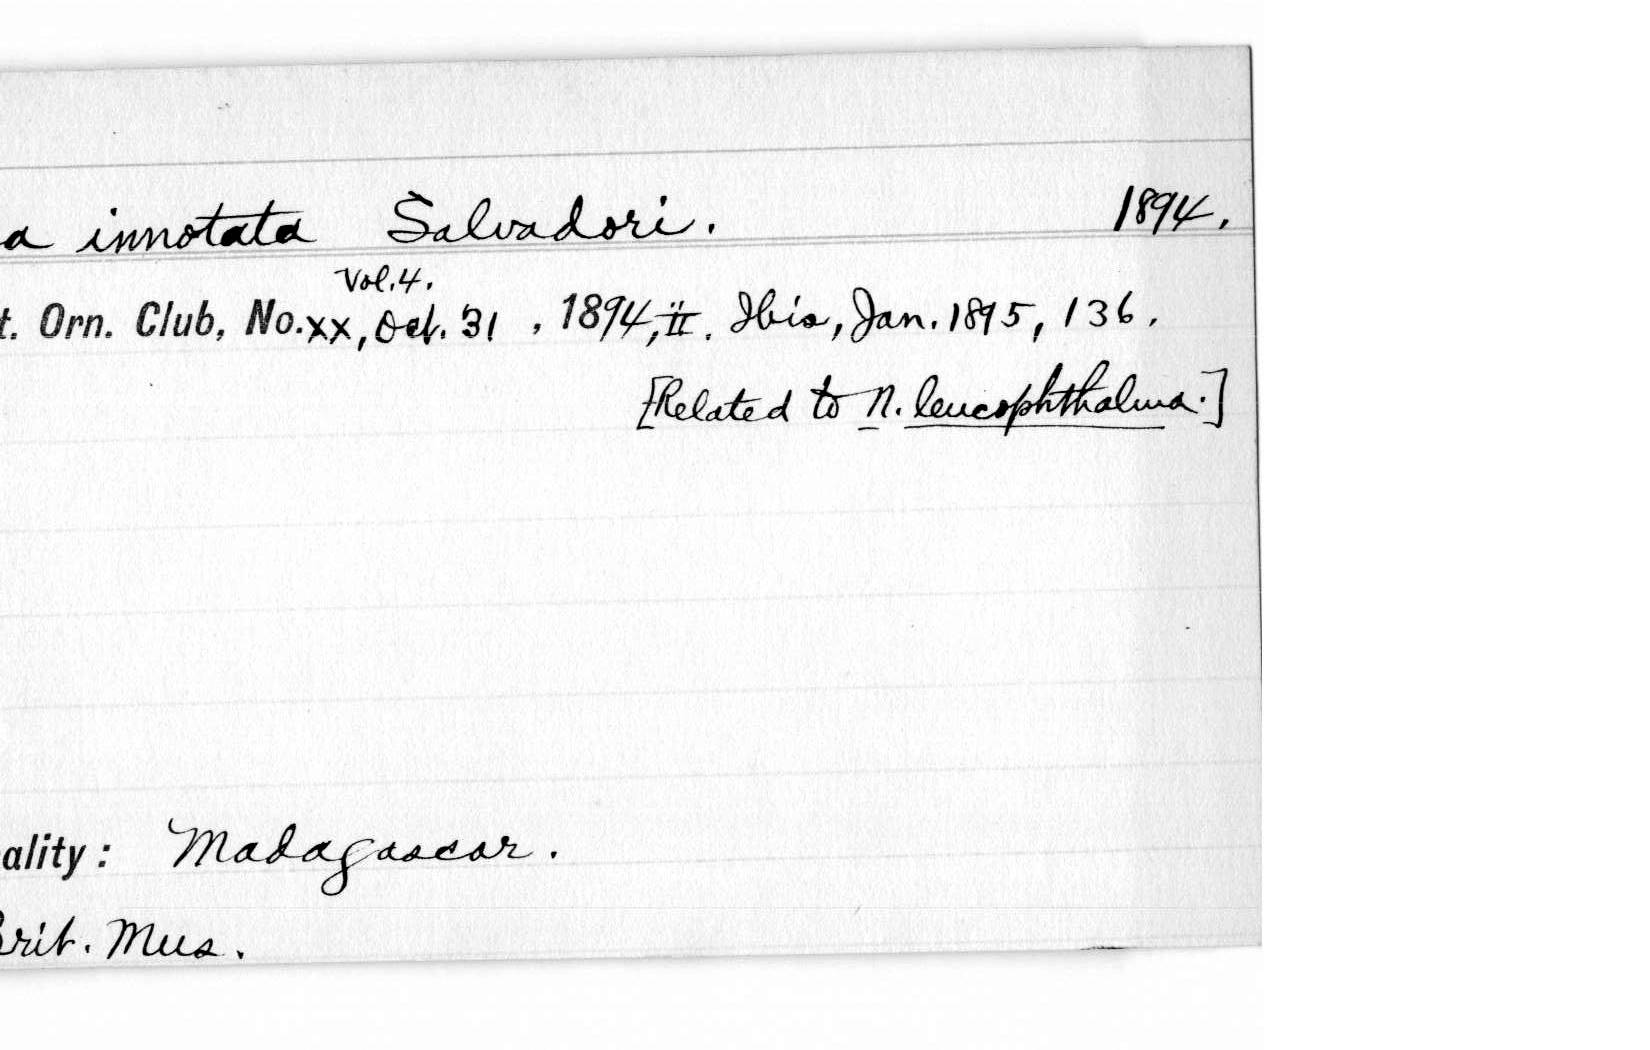 a innotata Salvadori. 1894.
Vol. 4.
t. Orn. Club, No. xx, Oct. 31 , 1894, ii. Ibis, Jan. 1895, 136.
[Related to N. leucophthalma.]
ality: Madagascar.
Brit. Mus.